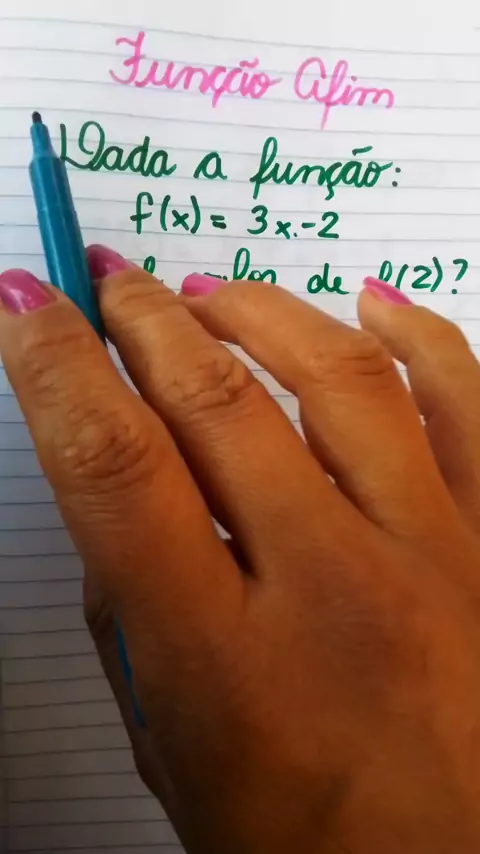 Função Afim
Dada a função:
f(x) = 3x.-2
de f(2)?